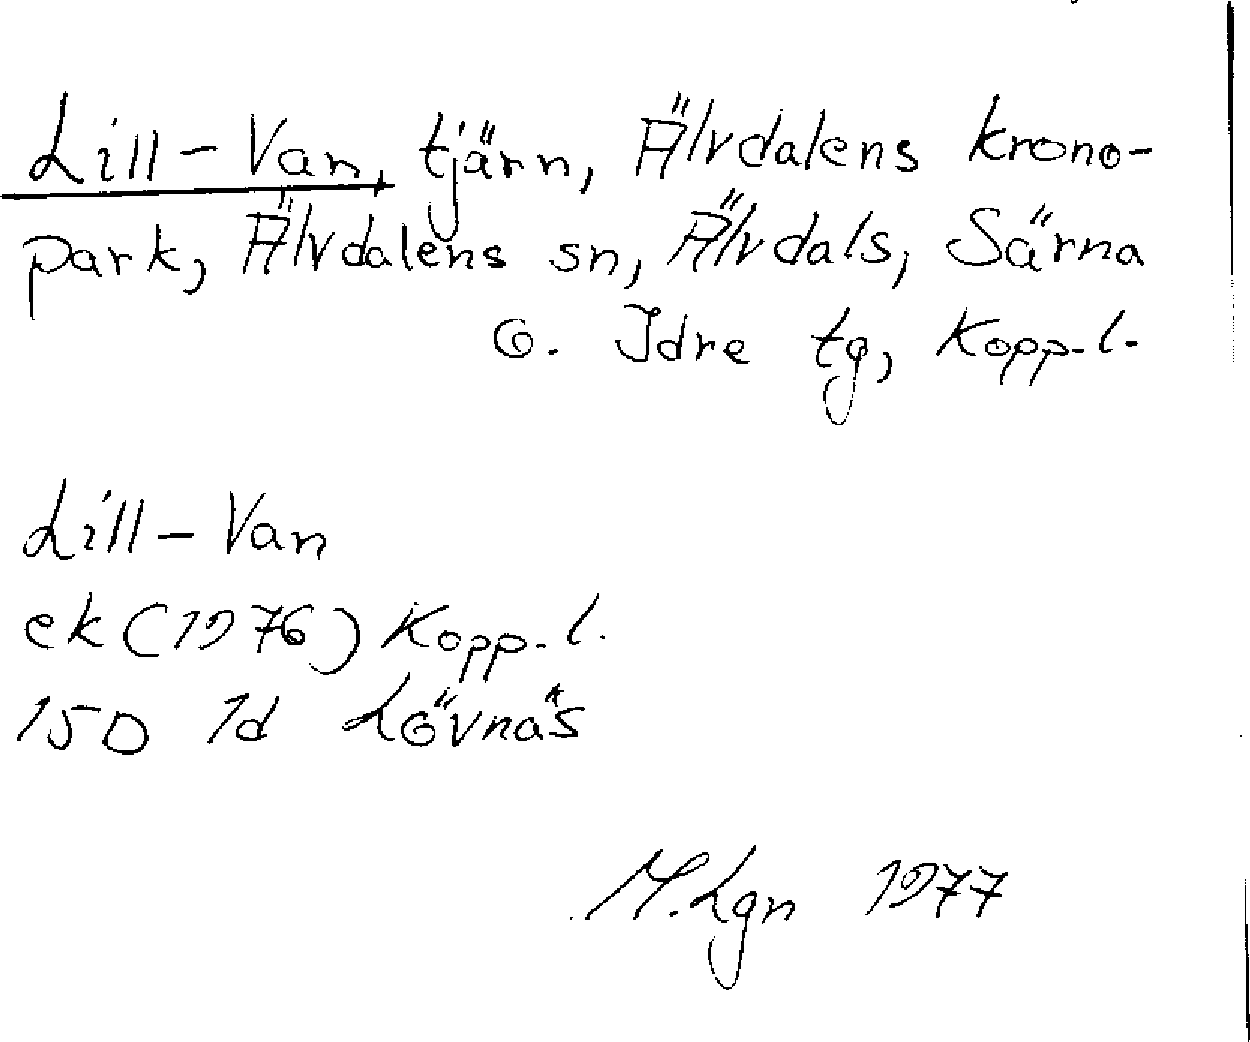 Lill-Van, tjärn, Älvdalens krono-
park, Älvdalens sn, Älvdals, Särna
o. Idre tg, Kopp.l.
Lill-Van
ek (1976) Kopp.l.
15D 1d Lövnäs
M.Lgn 1977